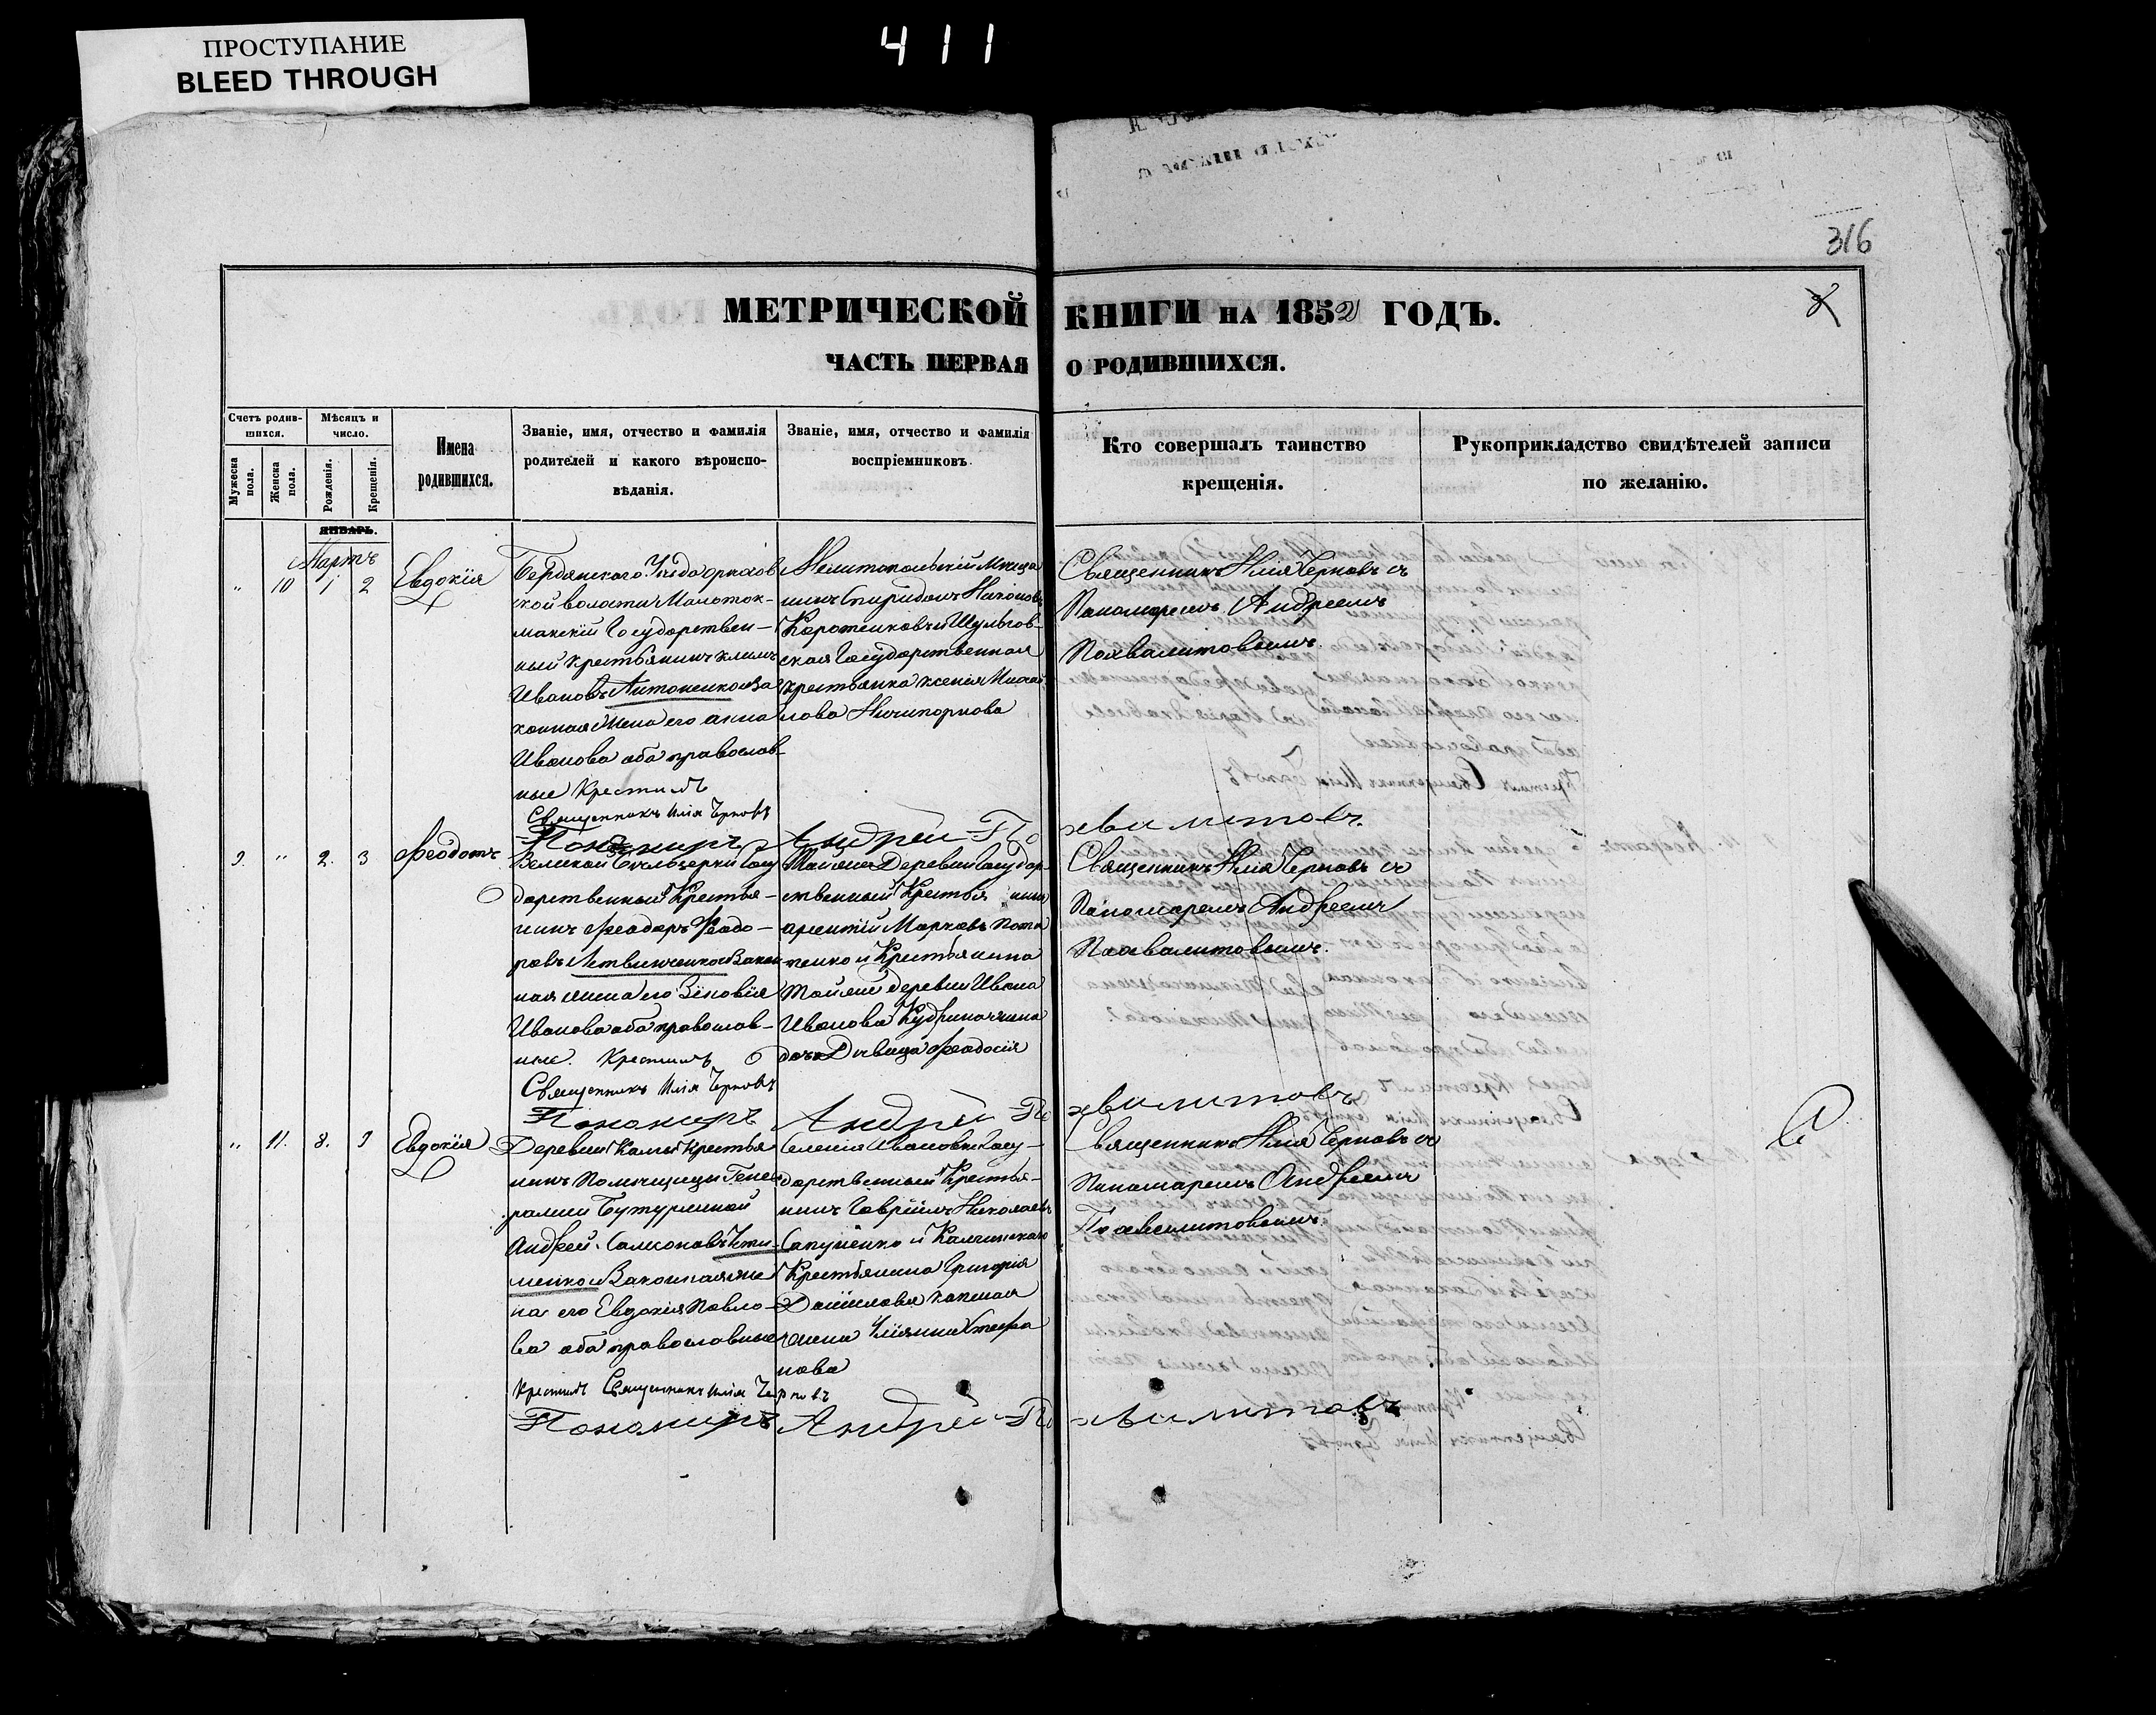 ПРОСТУПАНИЕ
BLEED THROUGH
411
316
МЕТРИЧЕСКОЙ КНИГИ НА 1852 ГОДЪ.
ЧАСТЬ ПЕРВАЯ О РОДИВШИХСЯ.
Счетъ родив-
шихся.
Мужеска пола.
Женска пола.
Мѣсяцъ и
число.
Рожденія.
Крещенія.
Имена
родившихся.
Званіе, имя, отчество и фамилія
родителей и какого вѣроиспо-
вѣданія.
Званіе, имя, отчество и фамилія
воспріемниковъ.
Кто совершалъ таинство
крещенія.
Рукоприкладство свидѣтелей записи
по желанію.
ЯНВАРЬ.
Мартъ
" 10 1 2
Евдокія
Бердянскаго Уѣзда орѣхов
ской волости Малоток-
макскій Государствен-
ный крестьянинъ климъ
Ивановъ Антоненко и За
конная Жена его анна
Иванова оба православ-
ные Крестилъ
Священникъ Илія Черновъ
Мелитопольскій Мѣща
нинъ Спиридонъ
Государственная
крестьянка ксенія Михай
лова Ничипорнова
Священникъ Илія Черновъ съ
Пономаремъ Андреемъ
Похвалитовымъ.
Пономарь Андрей Похвалитовъ.
9. " 2. 3
Феодотъ
Великой Бѣлозерки Госу
дарственный Крестья-
нинъ Феодоръ Феодо-
ровъ Литвиненко и Закон
ная жена его Зѣновія
Иванова оба православ-
ные. Крестилъ
Священникъ Илія Черновъ
Тойже Деревни Государ-
ственный Крестья нинъ
Марковъ Пота
пенко и Крестьянина
Тойже деревни Ивана
Иванова
дочь Дѣвица Феодосія
Священникъ Илія Черновъ съ
Пономаремъ Андреемъ
Похвалитовымъ.
Пономарь Андрей Похвалитовъ
" 11. 8. 9
Евдокія
Деревни Крестья
нинъ Помѣщицы Гене
ралши Бутурлиной
Андрей
менко и Законная же
на его Евдокія Павло-
ва оба православные
Крестилъ Священникъ Илія Черновъ
Селенія Ивановки Госу-
дарственный Крестья-
нинъ Гавріилъ Николаевъ
Крестьянина Григорія
жена Уліянна Стефа
нова
Священникъ Илія Черновъ съ
Пономаремъ Андреемъ
Похвалитовымъ.
Пономарь Андрей Похвалитовъ